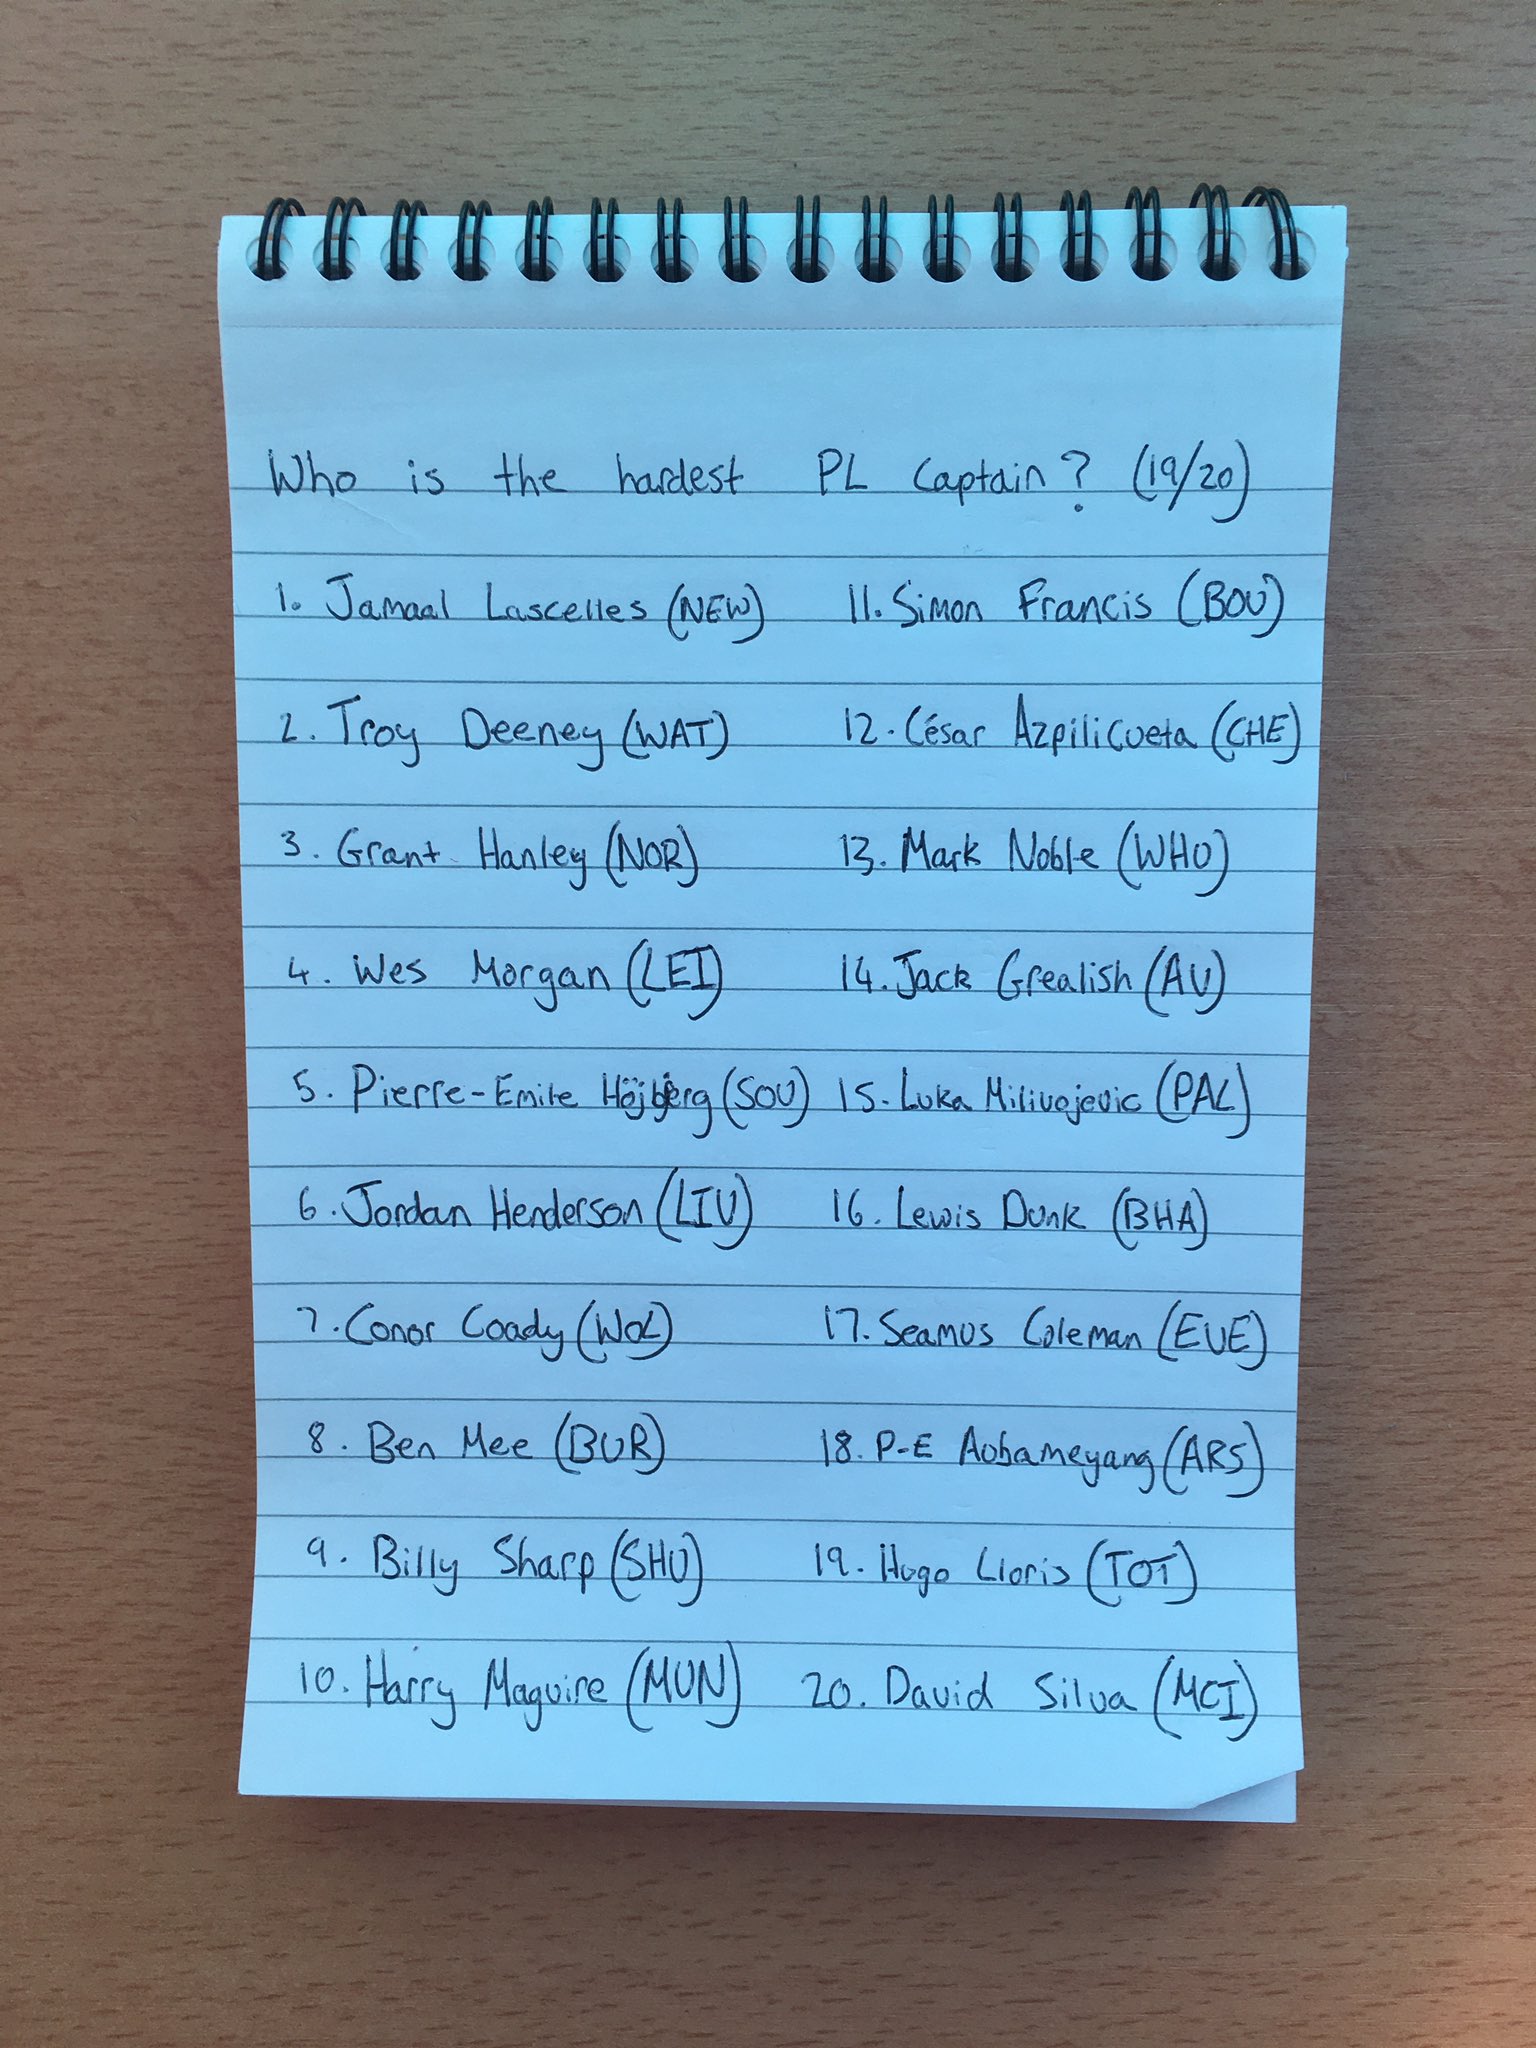 Who is the hardest PL Captain? (19/20)
1. Jamaal Lascelles (NEW)
2. Troy Deeney (WAT)
3. Grant Hanley (NOR)
4. Wes Morgan (LEI)
5. Pierre-Emile Höjbjerg (SOU)
6. Jordan Henderson (LIV)
7. Conor Coady (WOL)
8. Ben Mee (BUR)
9. Billy Sharp (SHU)
10. Harry Maguire (MUN)
11. Simon Francis (BOU)
12. César Azpilicueta (CHE)
13. Mark Noble (WHU)
14. Jack Grealish (AV)
15. Luka Milivojevic (PAL)
16. Lewis Dunk (BHA)
17. Seamus Coleman (EVE)
18. P-E Aubameyang (ARS)
19. Hugo Lloris (TOT)
20. David Silva (MCI)